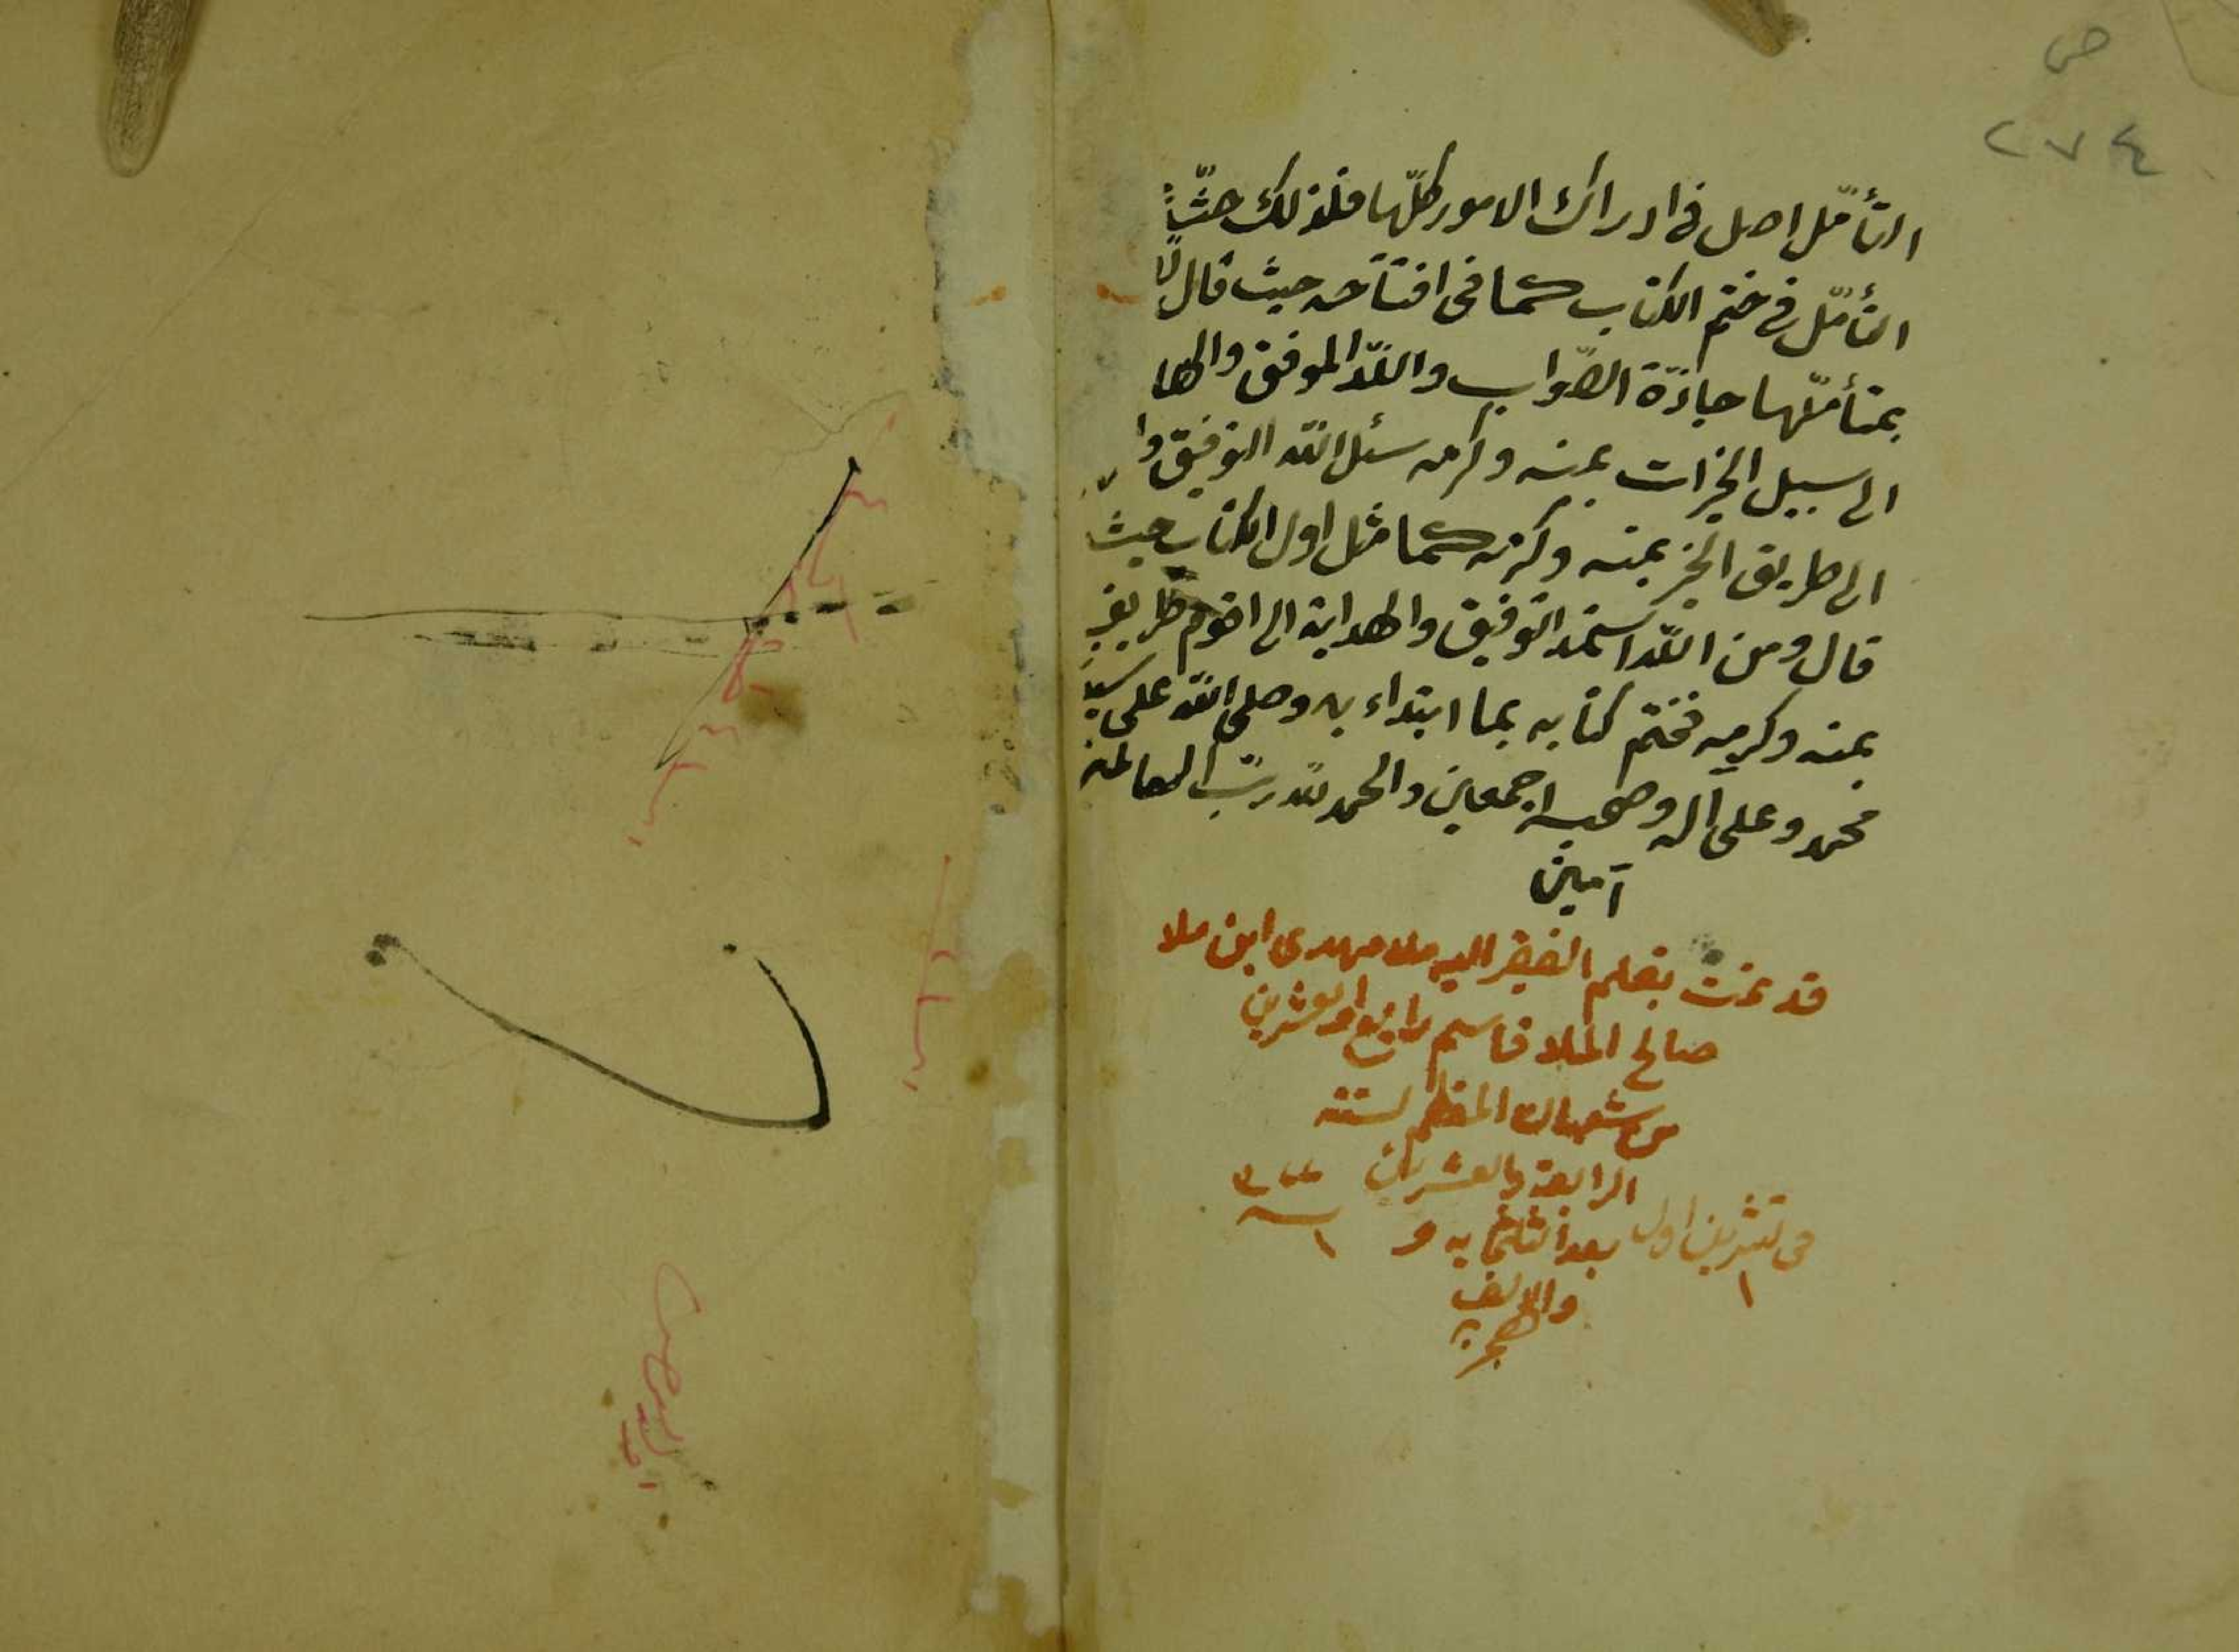 ص
٢٧٤
التأمّل اصل فى ادراك الامور كلّها فلذلك حثّ
التأمّل فى ختم الكتاب كما فى افتتاحه حيث قال
بمتأمّلها جادّة الصّواب والله الموفق والها
الى سبيل الخيرات بمنه وكرمه سئل الله التوفيق وا
الى طريق الخير بمنه وكرمه كما مثل اول الكتاب حيث
قال ومن الله استمد التوفيق والهداية الى اقوم طريق
بمنه وكرمه فختم كتابه بما ابتداء به وصلى الله على سيد
محمد وعلى اله وصحبه اجمعين والحمد لله ربّ العالمين
آمين
قد تمت بقلم الفقير اليه ملا مهدى ابن ملا
صالح الملا قاسم رابع والعشرين
من شعبان المعظم لسنة
الرابعة والعشرين
فى تشرين اول بعد الثلثمايه و
١
والالف
هجريه